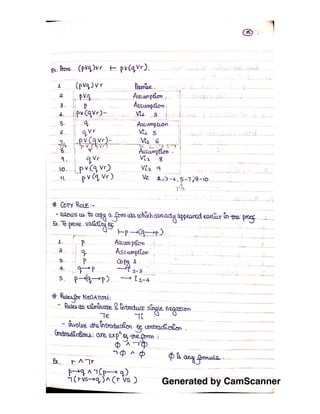 Ex. Prove (p∨q)∨r ⊢ p∨(q∨r).
1. (p∨q)∨r Premise.
2. p∨q Assumption.
3. p Assumption
4. p∨(q∨r)- ∨i₁ 3
5. q Assumption
6. q∨r ∨i₁ 5
7. p∨(q∨r)- ∨i₂ 6
8. r Assumption.
9. q∨r ∨i₂ 8
10. p∨(q∨r) ∨i₂ 9
11. p∨(q∨r) ∨e 2,3-4,5-7,8-10
* COPY RULE:-
- allows us to copy a formula which already appeared earlier in the proof.
Ex. To prove validity of
⊢p→(q→p)
1. p Assumption
2. q Assumption
3. p Copy 1
4. q→p →i 2-3
5. p→(q→p) →i 1-4
* Rules for NEGATION:
- Rules to eliminate & introduce single negation
¬e ¬i
- involve the introduction of contradiction.
Contradictions: are expⁿ of the form
φ∧¬φ
¬φ∧φ φ is any formula.
Ex. r∧¬r
p→q∧¬(p→q)
¬(r∨s→q)∧(r∨s)
Generated by CamScanner